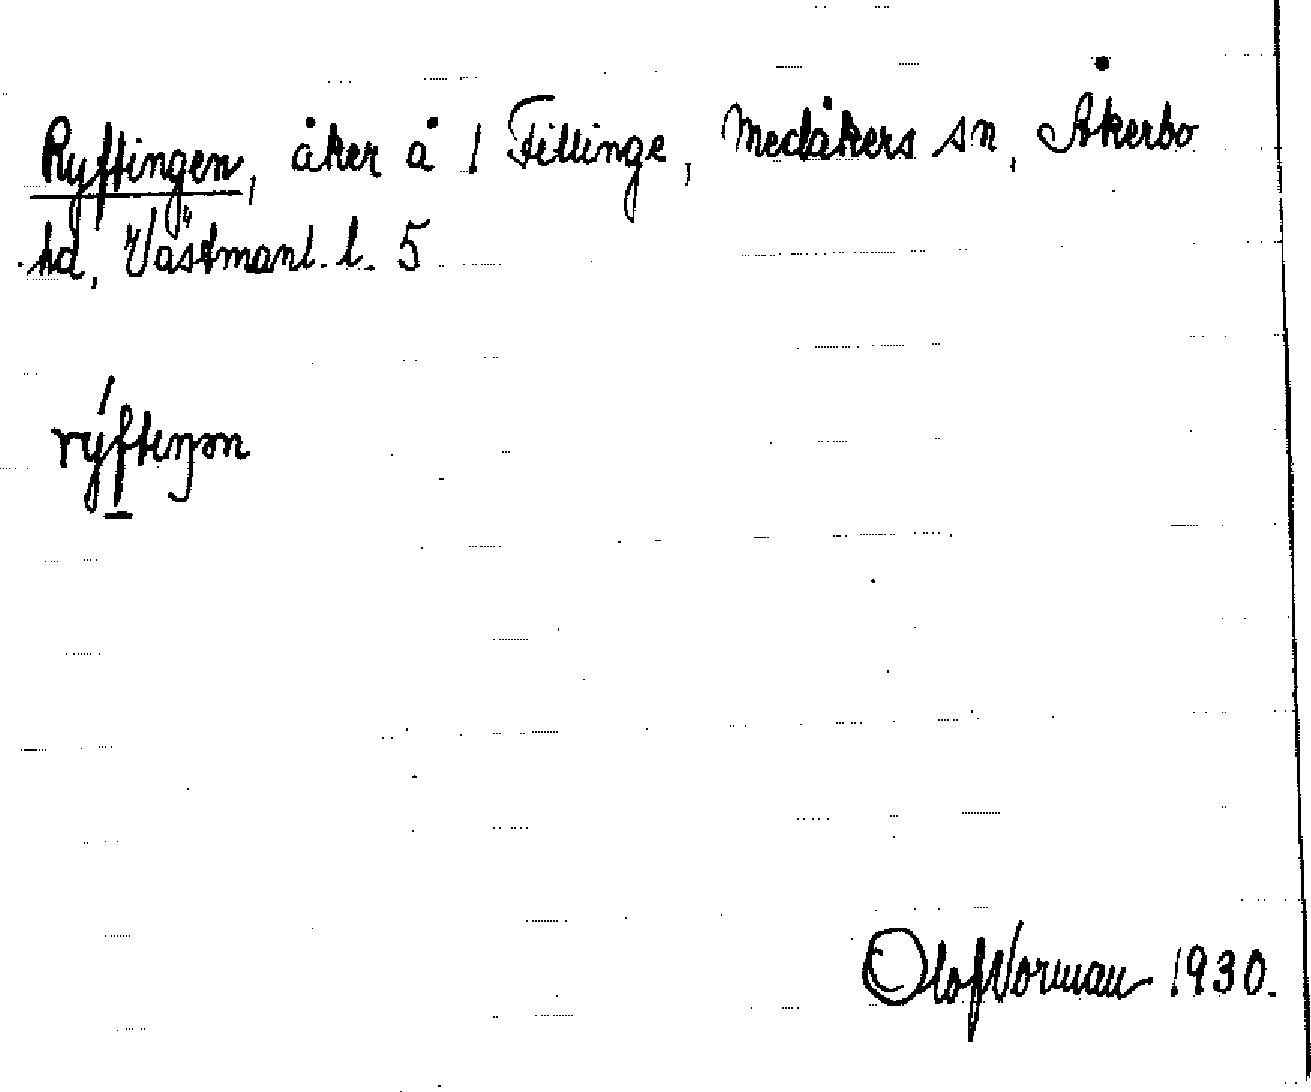 Ryftingen, åker å 1 Fillinge, Medåkers sn, Åkerbo
hd, Västmanl. l. 5
rýftiŋən
Olof Norman 1930.